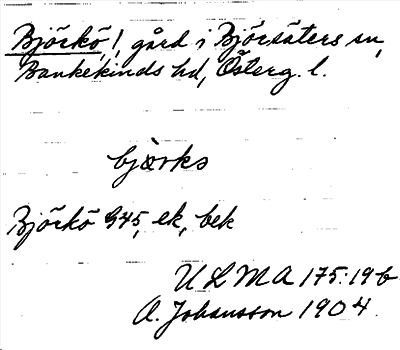 Björkö!, gård i Björsäters sn,
Bankekinds hd, Österg. l.
bjørks
Björkö G45, ek, bek
ULMA 175:19 b
A. Johansson 1904.